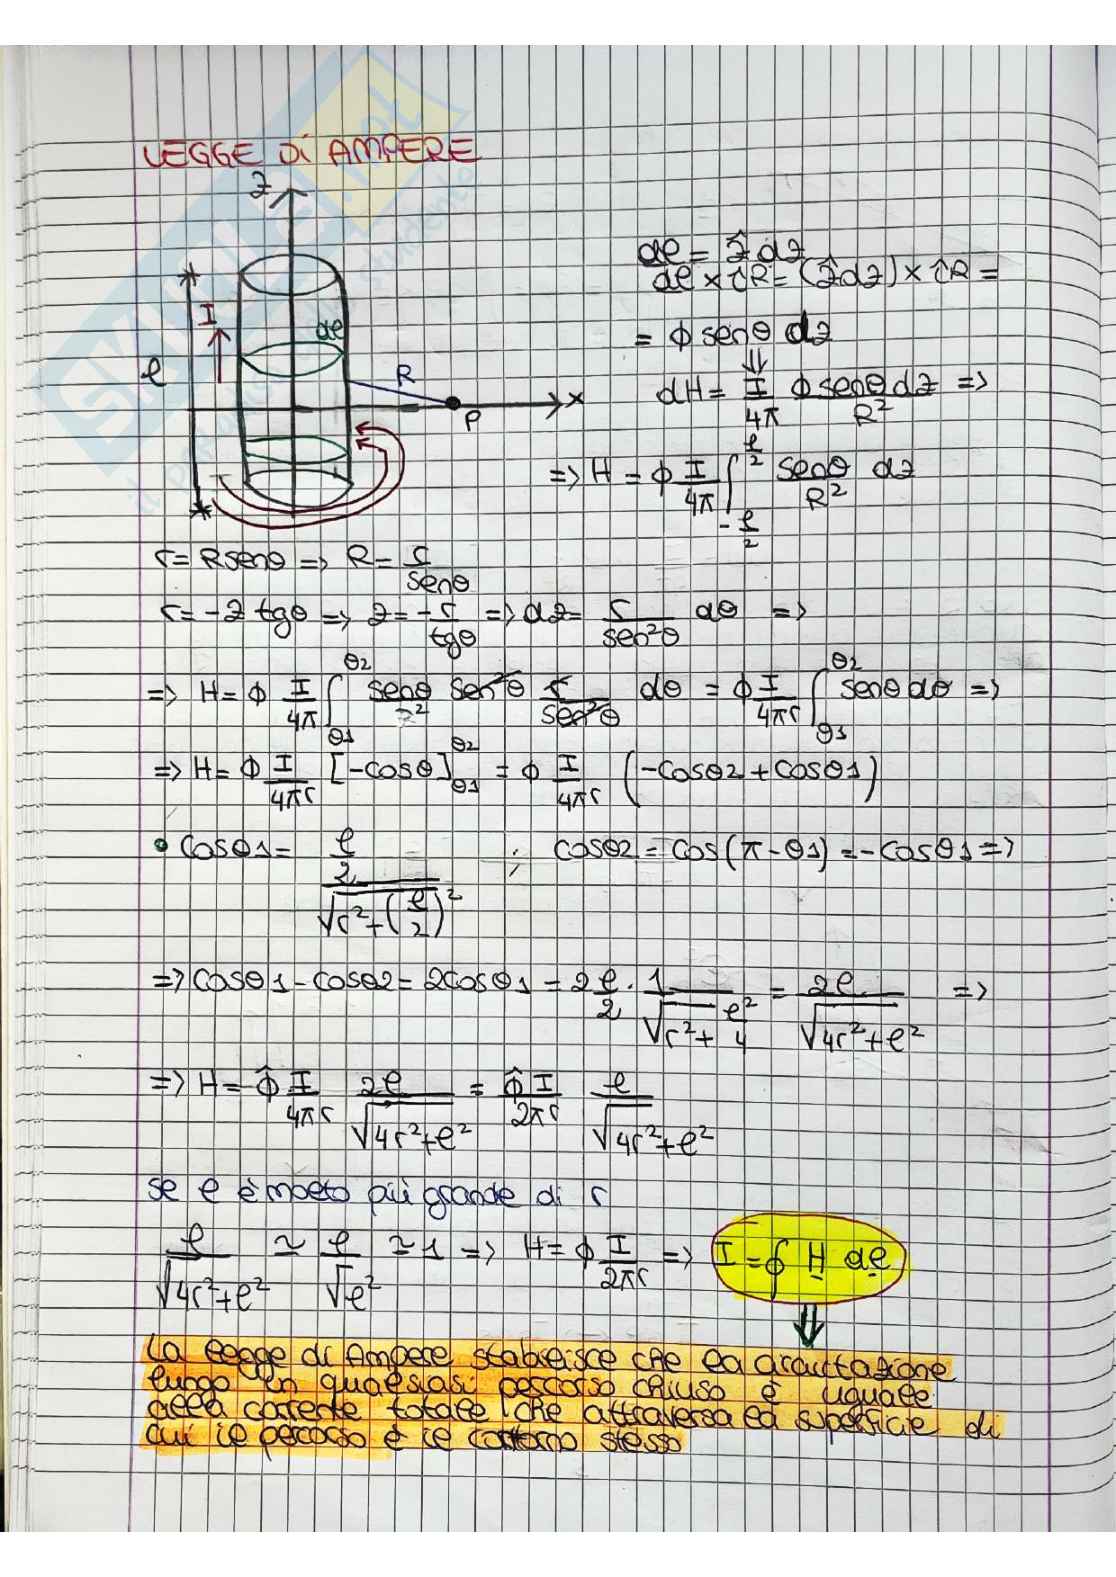 LEGGE Di AMPERE
z
dl = ẑ dz
dl × îR = (ẑdz) × îR =
I
dl
= ϕ senθ dz
l
R
⇓
dH = I/4π ϕ senθ dz/R² =>
x
P
=> H = ϕ I/4π ∫_{-l/2}^{l/2} senθ/R² dz
r = R senθ => R = r/senθ
r = -z tgθ => z = -r/tgθ => dz = r/sen²θ dθ =>
=> H = ϕ I/4π ∫_{θ1}^{θ2} senθ/r² sen²θ r/sen²θ dθ = ϕ I/4πr ∫_{θ1}^{θ2} senθ dθ =>
=> H = ϕ I/4πr [-cosθ]_{θ1}^{θ2} = ϕ I/4πr (-cosθ2 + cosθ1)
• cosθ1 = (l/2)/√(r² + (l/2)²) ; cosθ2 = cos(π - θ1) = -cosθ1 =>
=> cosθ1 - cosθ2 = 2cosθ1 = 2 l/2 · 1/√(r² + l²/4) = 2l/√(4r² + l²) =>
=> H = ϕ̂ I/4πr 2l/√(4r² + l²) = ϕ̂ I/2πr l/√(4r² + l²)
se l è molto più grande di r
l/√(4r² + l²) ≃ l/√l² ≃ 1 => H = ϕ I/2πr => I = ∮ H dl
⇓
La legge di Ampere stabilisce che la circuitazione
lungo un qualsiasi percorso chiuso è uguale
alla corrente totale che attraversa la superficie di
cui il percorso è il contorno stesso